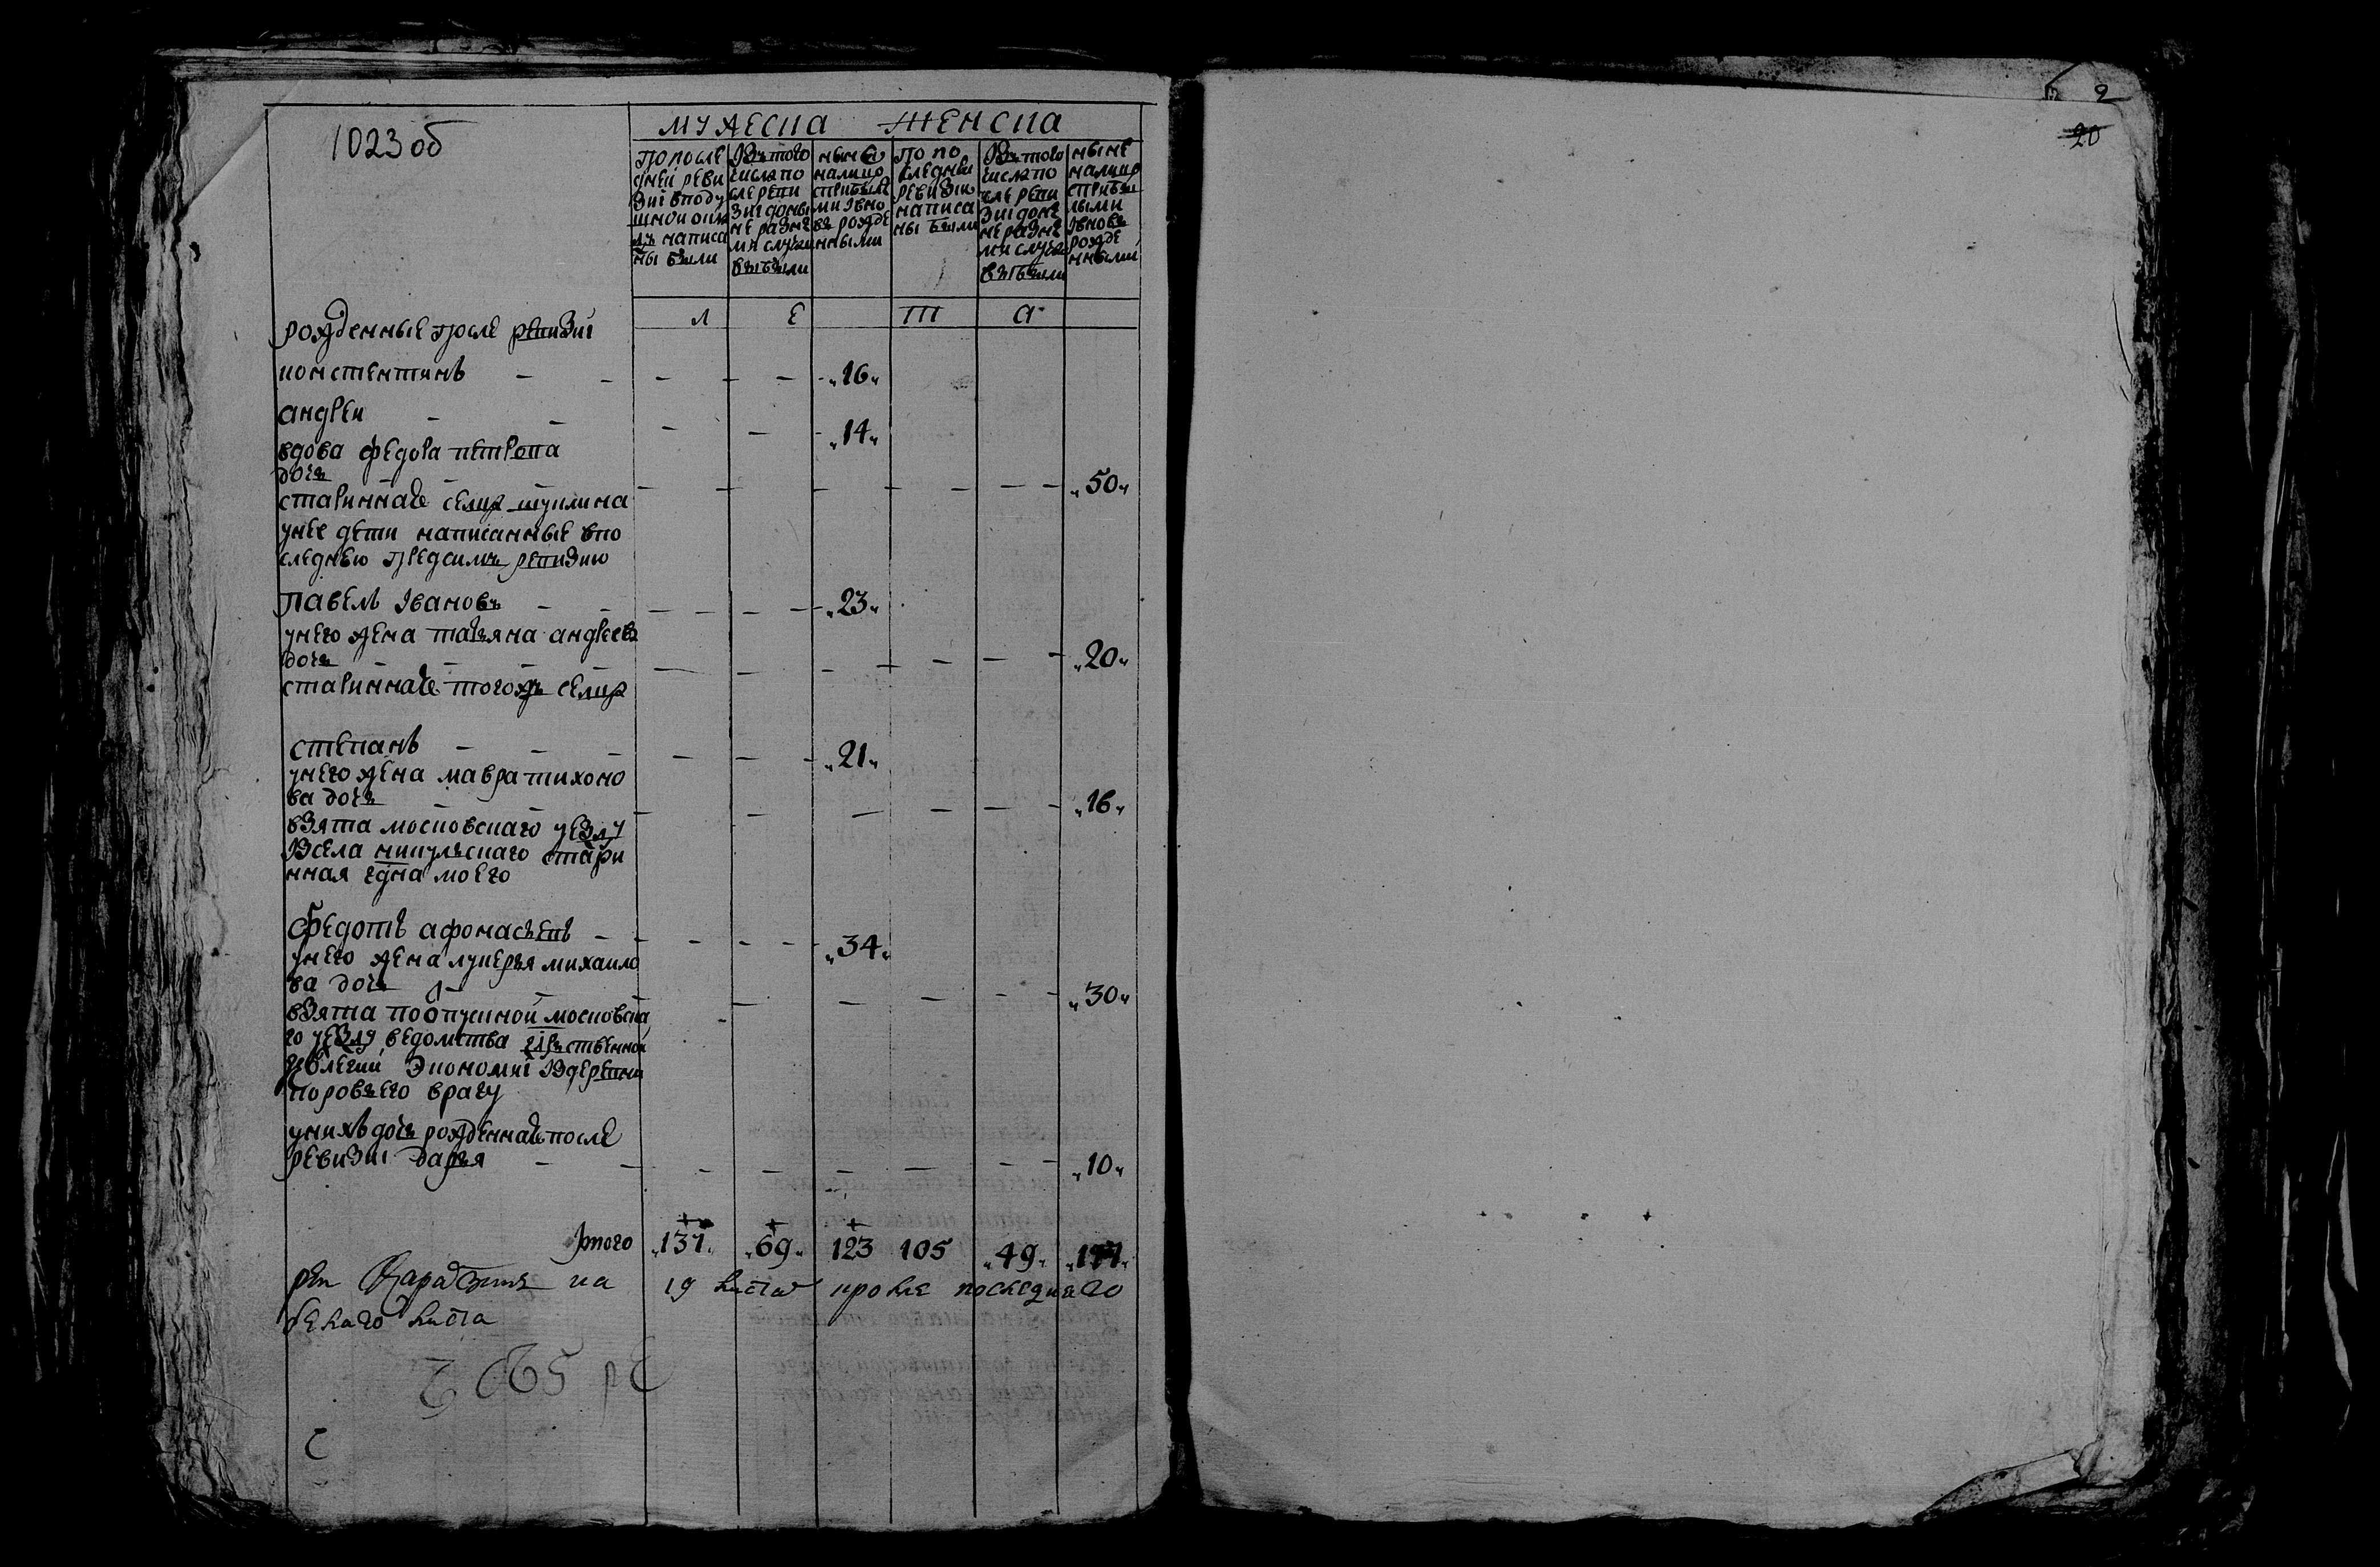 1023 об
МУЖЕСКА ЖЕНСКА
по после
дней реви
зиi в поду
шной окл
написа
ны были
ис того
числа по
сле реви
зиi до ны
не разны
ми случаи
выбыли
ныне
налицо
с прибылы
ми i вно
въ рожде
нными
по по
следней
ревизии
написа
ны были
ис того
числа по
сле реви
зиi до не
разны
ми случ
выбыли
ныне
налицо
с прибы
лыми
i вновь
рожде
нными
Л Е Т А
рожденные после ревизиi
констентинъ - - - - - „16„
андреи - - - - „14„
вдова федора петрова
дочь - - - - - - - „50„
стариннаже селца шуклина
у нее дети написанные в по
следнею пред симъ ревизию
павелъ iвановъ - - - - - „23„
у него жена татьяна андреев
дочь - - - - - - - „20„
стариннаже тогожъ селца
степанъ - - - - - „21„
у него жена мавра тихоно
ва дочь - - - - - - „16„
взята московскаго уезду
ис села никулскаго стари
нная моего
федотъ афонасьевъ - - - - - „34„
у него жена лукерья михаило
ва дочь - - - - - - „30„
взята по отпускной московска
го уезду ведомства
колегии экономиi из деревни
коровьего врагу
у нихъ дочь рожденная после
ревизиi дарья - - - - - - „10„
iтого „137„ „69„ 123 105 „49„
на 19 листах кроме последнего
белаго листа
с
2
20